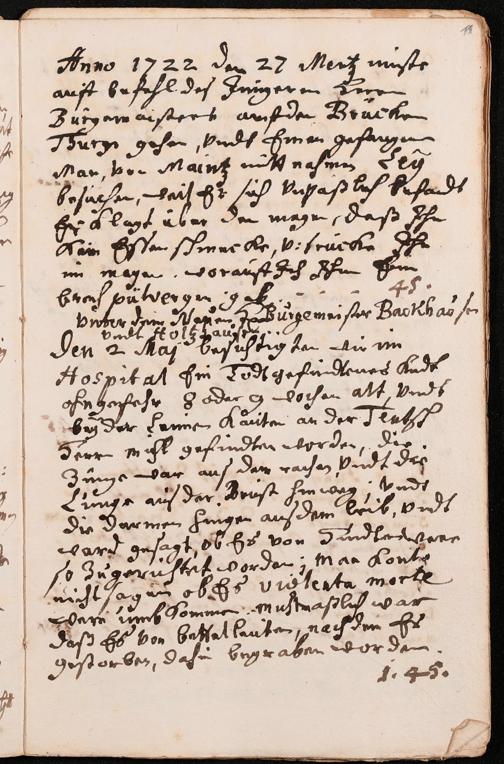 Anno 1722 den 27 Mertz muste
auff befehl des Jungeren Herrn
Bürgermaisters auff den Brücken
Thurn gehen, undt Einen gefangenen
Man, von Maintz mitt nahmen Ley
besuchen, weil Er sich unpaßlich befandt
Er klagt über den magen, daß Ihn
kein Essen schmecke, u: drücke Ihn
im magen. worauff Ich Ihm Ein
brech pülvergen gab
45.
Unter dem Bürgemeister Backhausen
undt
Den 2 Maj besichtigten wir im
Hospital Ein Todt gefundenes Kindt
ohngefehr 8 oder 9 wochen alt, undt
bey der Leimen Kauten an der Teutsch
Herrn mühl gefundten worden, die
Zunge war aus dem rachen undt die
Lunge aus der Brust hinweg, undt
die darmen hingen aus dem leib, undt
ward gesagt, ob Es von
so Zugerichtet worden; man konte
nicht sagen ob Es violenta morte
were umb kommen. muthmaßlich war
daß Es von bettelleuten, nach dem Es
gestorben, dahin begraben worden.
1. 45.